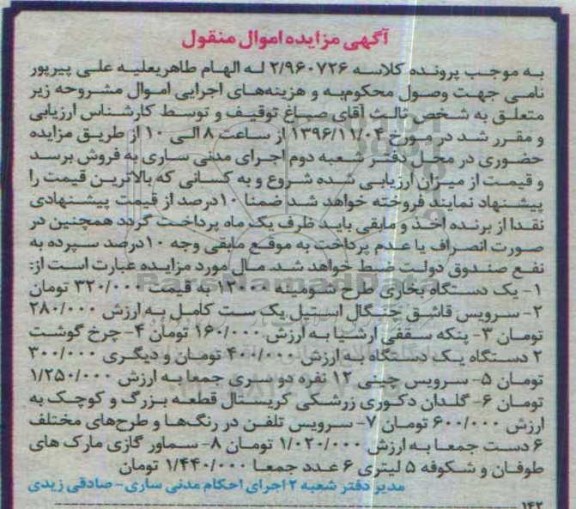 آگهی مزایده اموال منقول
به موجب پرونده کلاسه ۲/۹۶۰۷۲۶ له الهام طاهری علیه علی پیرپور
نامی جهت وصول محکوم‌به و هزینه‌های اجرایی اموال مشروحه زیر
متعلق به شخص ثالث آقای صباغ توقیف و توسط کارشناس ارزیابی
و مقرر شد در مورخ ۱۳۹۶/۱۱/۰۴ از ساعت ۸ الی ۱۰ از طریق مزایده
حضوری در محل دفتر شعبه دوم اجرای مدنی ساری به فروش برسد
و قیمت از میزان ارزیابی شده شروع و به کسانی که بالاترین قیمت را
پیشنهاد نمایند فروخته خواهد شد ضمنا ۱۰درصد از قیمت پیشنهادی
نقدا از برنده اخذ و مابقی باید ظرف یک ماه پرداخت گردد همچنین در
صورت انصراف یا عدم پرداخت به موقع مابقی وجه ۱۰درصد سپرده به
نفع صندوق دولت ضبط خواهد شد. مال مورد مزایده عبارت است از:
۱- یک دستگاه بخاری طرح شومینه ۱۳۰۰۰ به قیمت ۳۲۰/۰۰۰ تومان
۲- سرویس قاشق چنگال استیل یک ست کامل به ارزش ۲۸۰/۰۰۰
تومان ۳- پنکه سقفی ارشیا به ارزش ۱۶۰/۰۰۰ تومان ۴- چرخ گوشت
۲ دستگاه یک دستگاه به ارزش ۴۰۰/۰۰۰ تومان و دیگری ۳۰۰/۰۰۰
تومان ۵- سرویس چینی ۱۲ نفره دو سری جمعا به ارزش ۱/۲۵۰/۰۰۰
تومان ۶- گلدان دکوری زرشکی کریستال قطعه بزرگ و کوچک به
ارزش ۶۰۰/۰۰۰ تومان ۷- سرویس تلفن در رنگ‌ها و طرح‌های مختلف
۶ دست جمعا به ارزش ۱/۰۲۰/۰۰۰ تومان ۸- سماور گازی مارک های
طوفان و شکوفه ۵ لیتری ۶ عدد جمعا ۱/۴۴۰/۰۰۰ تومان
مدیر دفتر شعبه ۲ اجرای احکام مدنی ساری- صادقی زیدی
۱۴۲